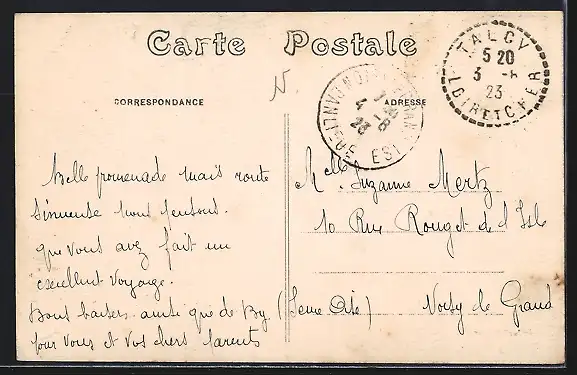 Carte Postale
CORRESPONDANCE
ADRESSE
TALCY
5 20
3 -8
23
LOIR ET CHER
4 -8
23
EST
Belle promenade mais route
Sinueuse nous pensons.
que vous avez fait un
excellent voyage.
Bons baisers ainsi que de
pour vous et vos chers parents
Melle Suzanne Mertz
10 Rue Rouget de l'Isle
Noisy le Grand
(Seine Oise)